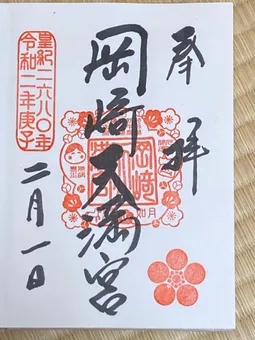 奉拝
岡崎天満宮
岡崎
如月
皇紀二六八〇年
令和二年庚子
二月一日